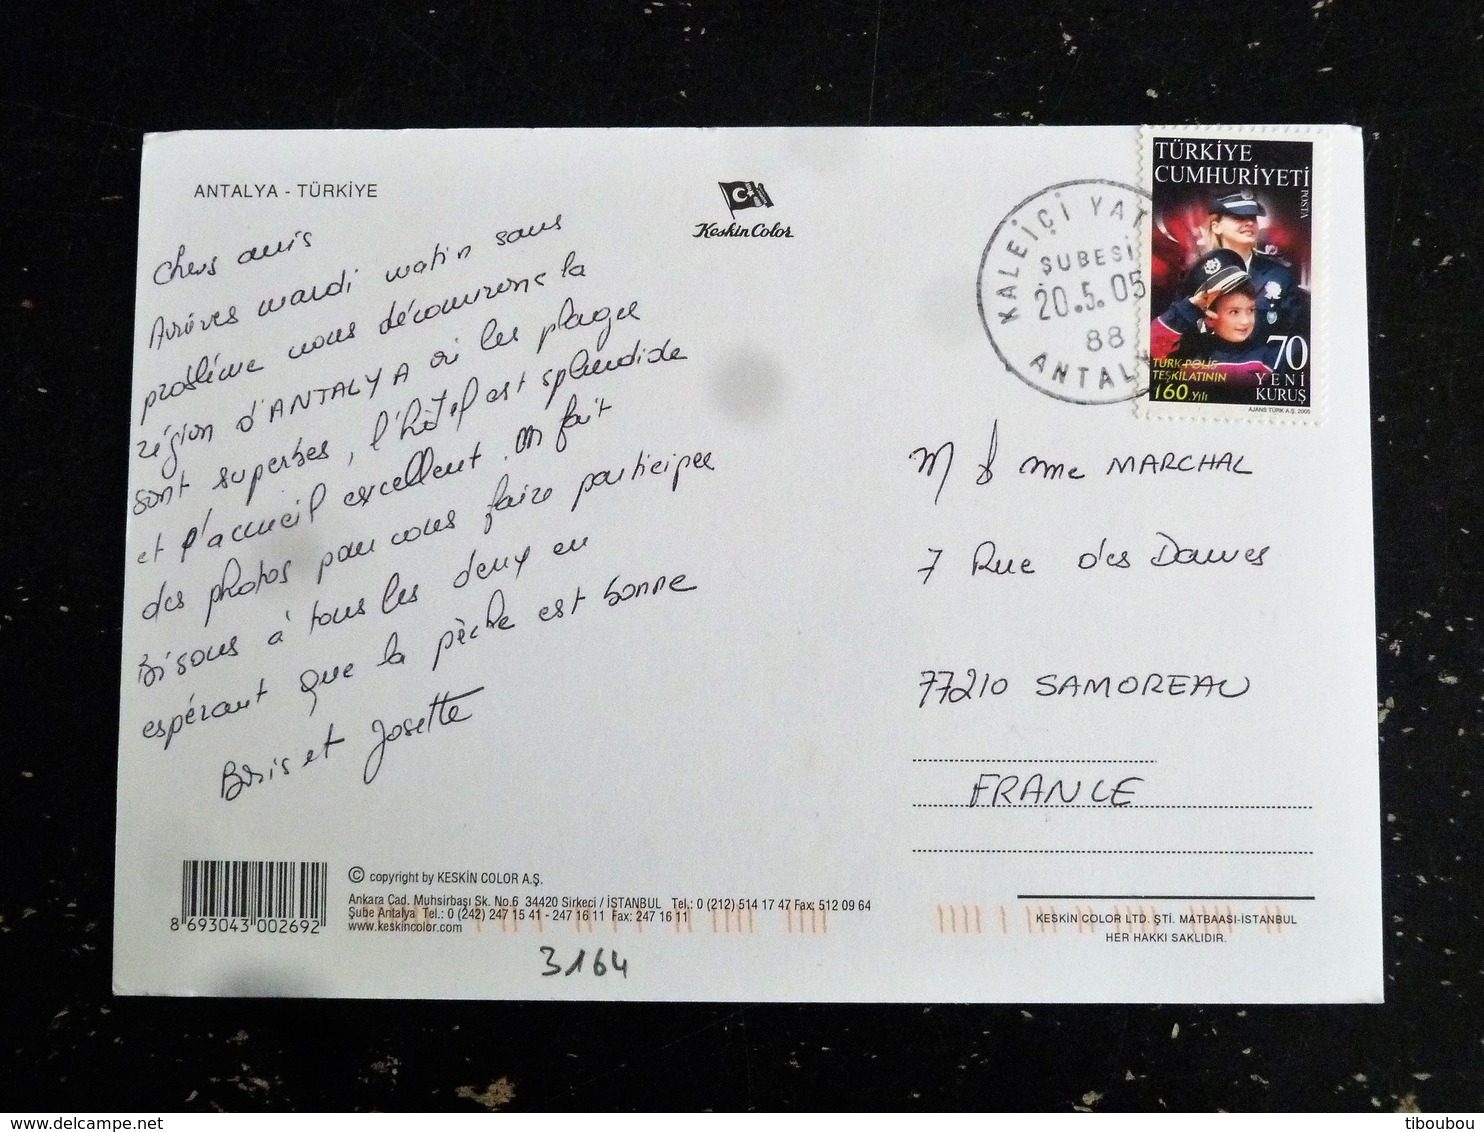 ANTALYA - TÜRKİYE
Keskin Color
Chers amis
Arrivés mardi matin sans
problème nous découvrons la
région d'ANTALYA où les plages
sont superbes, l'hôtel est splendide
et l'accueil excellent. On fait
des photos pour vous faire participer
Bisous à tous les deux en
espérant que la pêche est bonne
Boris et Josette
KALEİÇİ YAT
ŞUBESİ
20.5.05
88
ANTAL
TÜRKİYE
CUMHURİYETİ
POSTA
70
YENİ
KURUŞ
TÜRK POLİS
TEŞKİLATININ
160.yılı
AJANS TÜRK A.Ş. 2005
M & Mme MARCHAL
7 Rue des Dames
77210 SAMOREAU
FRANCE
8 693043 002692
© copyright by KESKİN COLOR A.Ş.
Ankara Cad. Muhsirbaşı Sk. No.6 34420 Sirkeci / İSTANBUL Tel.: 0 (212) 514 17 47 Fax: 512 09 64
Şube Antalya Tel.: 0 (242) 247 15 41 - 247 16 11 Fax: 247 16 11
www.keskincolor.com
KESKİN COLOR LTD. ŞTİ. MATBAASI-İSTANBUL
HER HAKKI SAKLIDIR.
3164
delcampe.net
tiboubou